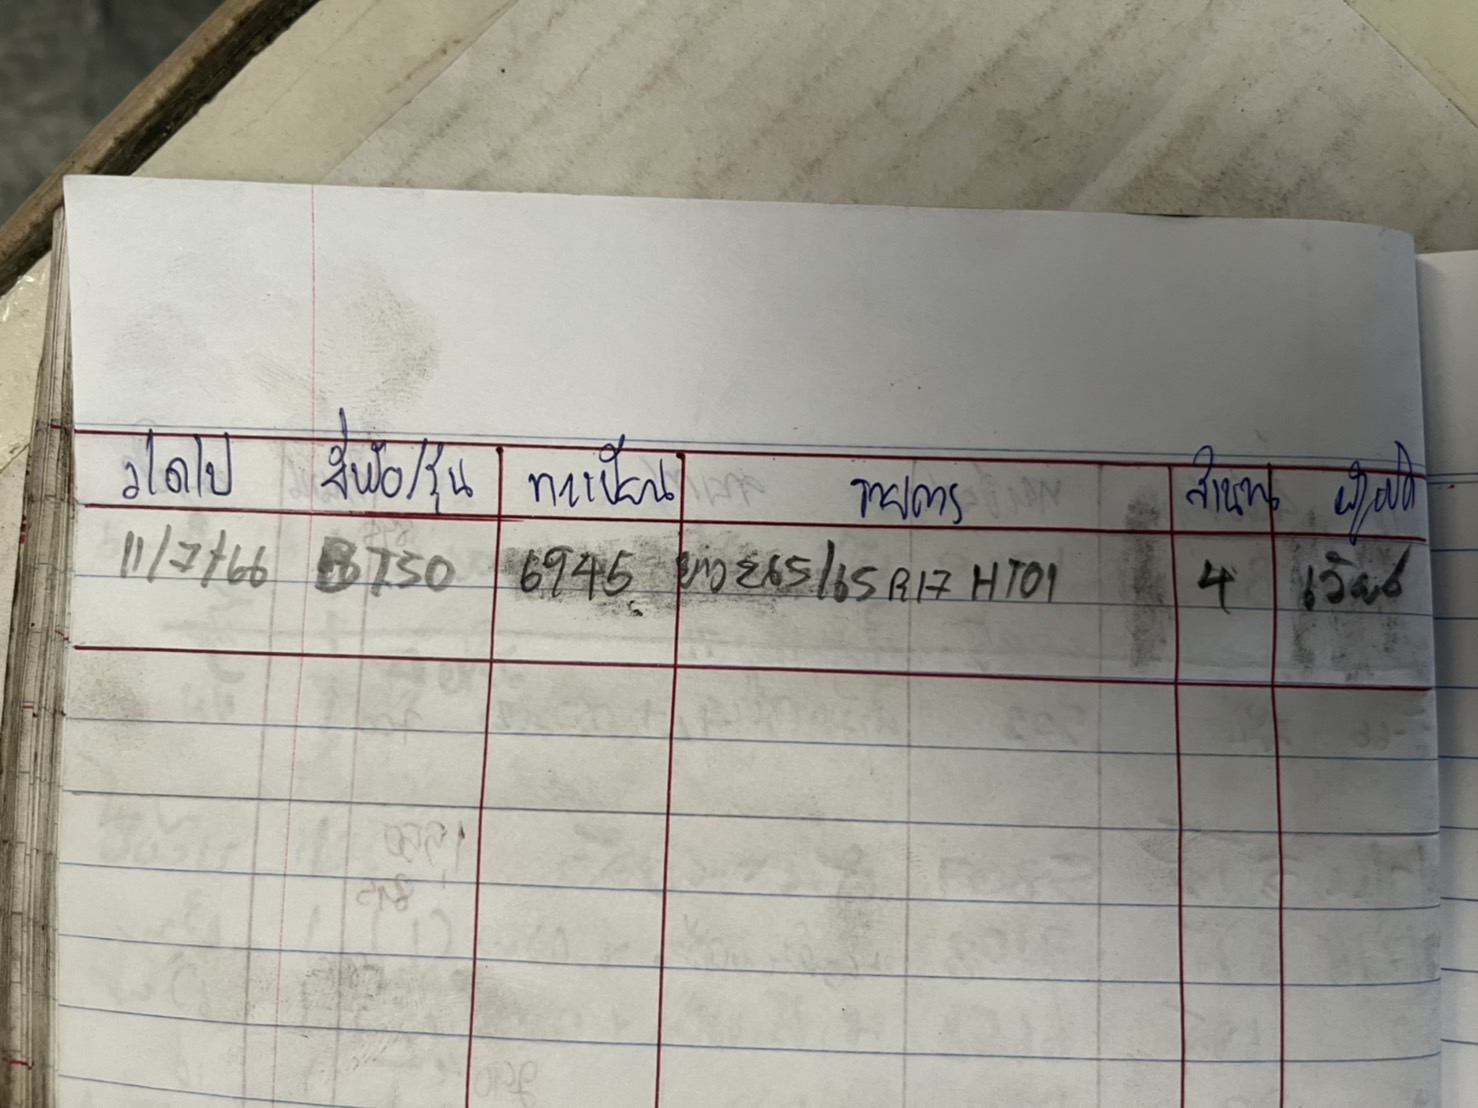 ว/ด/ป ยี่ห้อ/รุ่น ทะเบียน รายการ จำนวน
11/7/66 BT50 6945 ยาง 265/65 R17 HT01 4